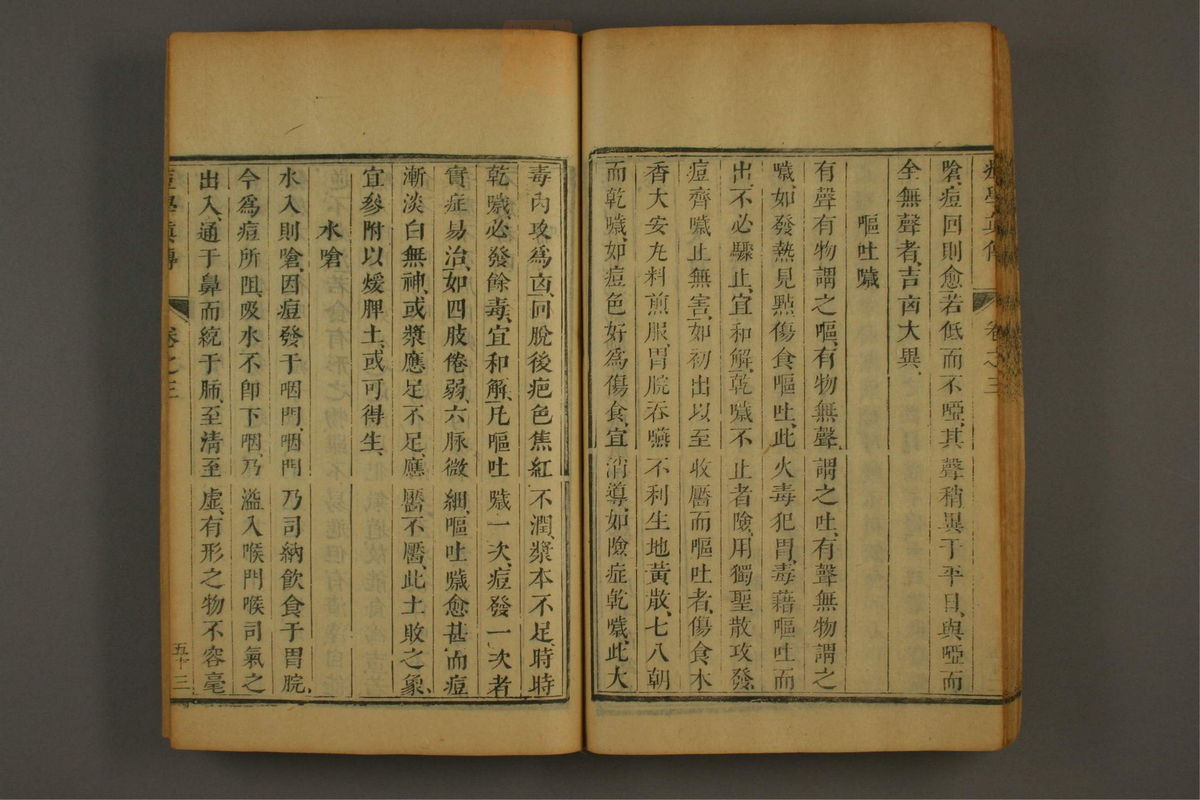 痘學真傳
卷之三
嗆痘回則愈若低而不啞其聲稍異于平日與啞而
全無聲者吉凶大異
嘔吐噦
有聲有物謂之嘔有物無聲謂之吐有聲無物謂之
噦如發熱見點傷食嘔吐此火毒犯胃毒藉嘔吐而
出不必驟止宜和解乾噦不止者險用獨聖散攻發
痘齊噦止無害如初出以至收靨而嘔吐者傷食木
香大安丸料煎服胃脘吞嚥不利生地黃散七八朝
而乾噦如痘色好為傷食宜消導如險症乾噦此大
毒內攻為凶回脫後疤色焦紅不潤漿本不足時時
乾噦必發餘毒宜和解凡嘔吐噦一次痘發一次者
實症易治如四肢倦弱六脉微細嘔吐噦愈甚而痘
漸淡白無神或漿應足不足應靨不靨此土敗之象
宜參附以煖脾土或可得生
水嗆
水入則嗆因痘發于咽門咽門乃司納飲食于胃脘
今為痘所阻吸水不卽下咽乃溢入喉門喉司氣之
出入通于鼻而統于肺至清至虛有形之物不容毫
痘學真傳
卷之三
五十三